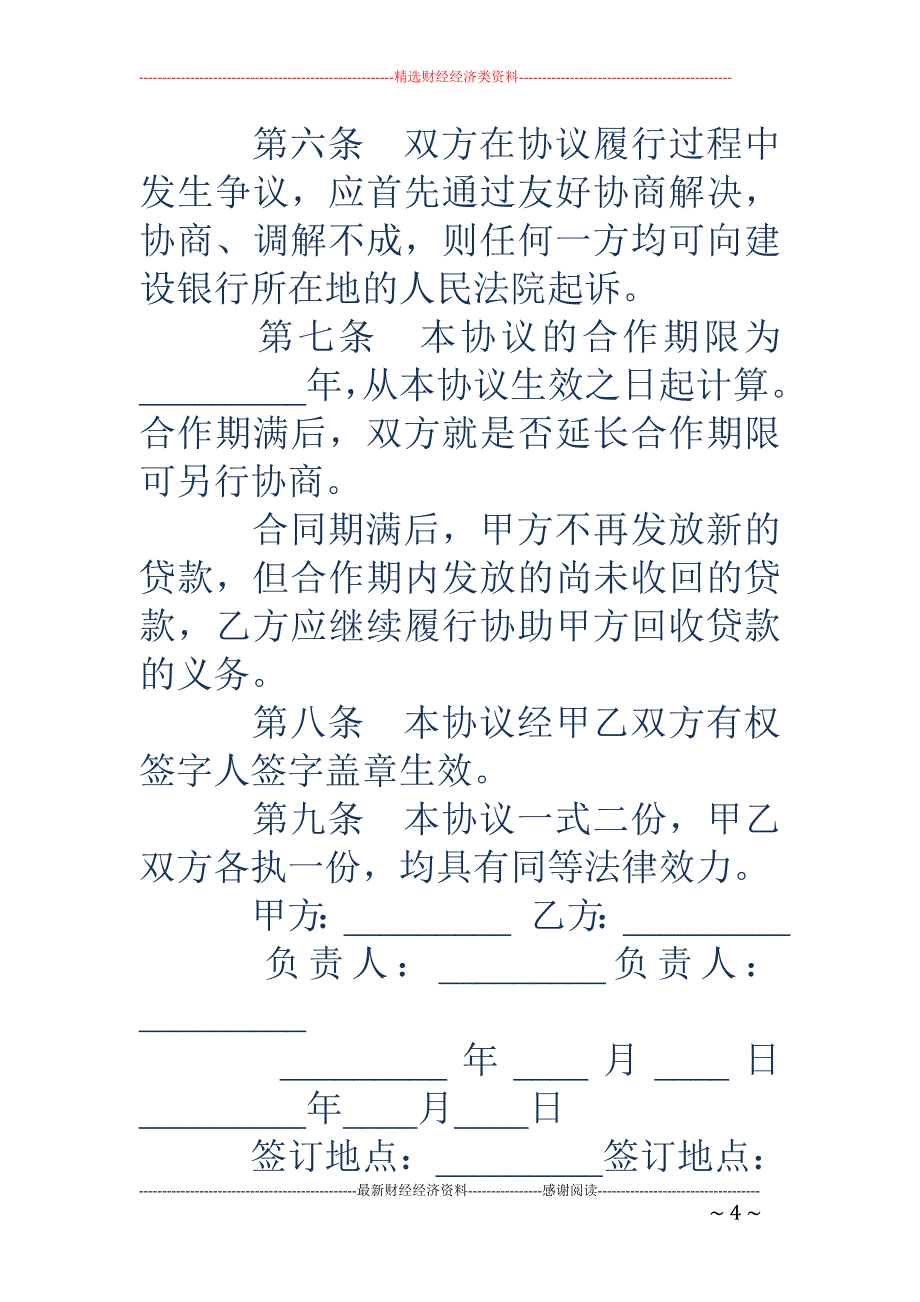 ------------------------------------------------------精选财经经济类资料----------------------------------------------
第六条　双方在协议履行过程中
发生争议，应首先通过友好协商解决，
协商、调解不成，则任何一方均可向建
设银行所在地的人民法院起诉。
第七条　本协议的合作期限为
_________年，从本协议生效之日起计算。
合作期满后，双方就是否延长合作期限
可另行协商。
合同期满后，甲方不再发放新的
贷款，但合作期内发放的尚未收回的贷
款，乙方应继续履行协助甲方回收贷款
的义务。
第八条　本协议经甲乙双方有权
签字人签字盖章生效。
第九条　本协议一式二份，甲乙
双方各执一份，均具有同等法律效力。
甲方：_________ 乙方：_________
负责人：_________负责人：
_________
_________年____月____日
_________年____月____日
签订地点：_________签订地点：
-----------------------------------------------最新财经经济资料----------------感谢阅读-----------------------------------
~ 4 ~